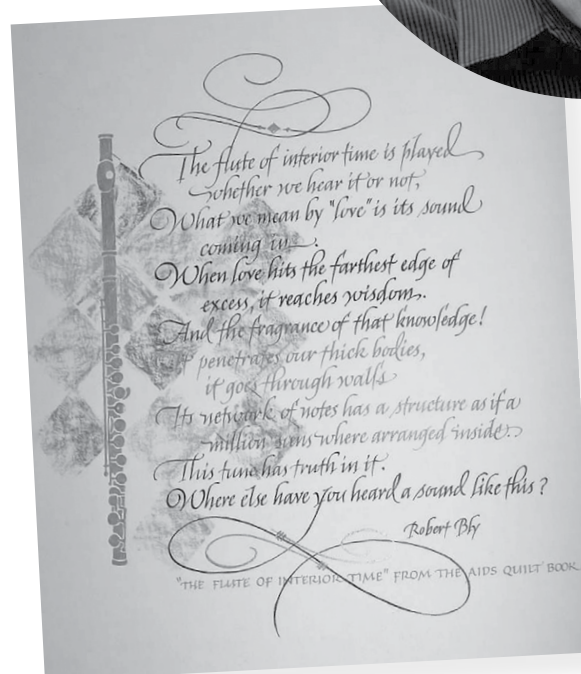 The flute of interior time is played
whether we hear it or not,
What we mean by "love" is its sound
coming in.
When love hits the farthest edge of
excess, it reaches wisdom.
And the fragrance of that knowledge!
It penetrates our thick bodies,
it goes through walls
Its network of notes has a structure as if a
million suns where arranged inside.
This tune has truth in it.
Where else have you heard a sound like this?
Robert Bly
"THE FLUTE OF INTERIOR TIME" FROM THE AIDS QUILT BOOK.